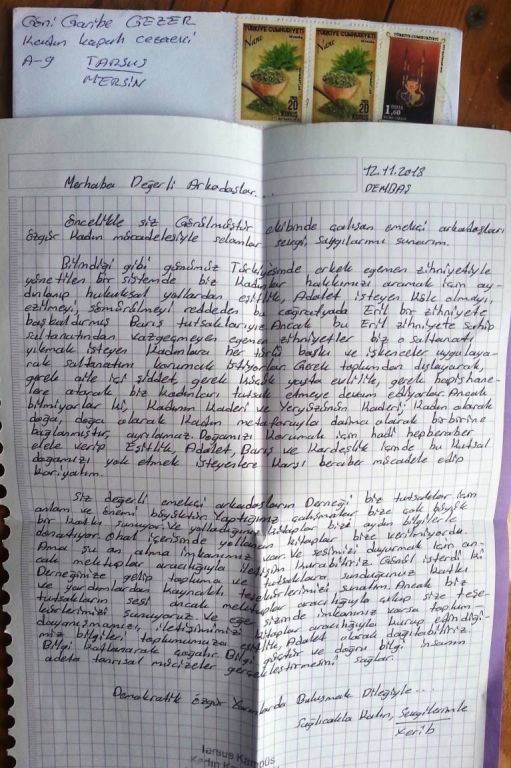 Gori Garibe GEZER
Kadın kapalı cezaevi
A-9 TARSUS
MERSİN
TÜRKİYE CUMHURİYETİ
Nane
20
KURUŞ
TÜRKİYE CUMHURİYETİ
Nane
20
KURUŞ
TÜRKİYE CUMHURİYETİ
1,60
12.11.2018
Merhaba Değerli Arkadaşlar...
Öncelikle siz Görülmüştür ekibinde çalışan emekçi arkadaşları
özgür kadın mücadelesiyle selamlar sevgi, saygılarımı sunarım.
Bilindiği gibi günümüz Türkiyesinde erkek egemen zihniyetiyle
yönetilen bir sistemde biz kadınlar hakkımızı aramak için ay-
dınlanıp hukuksal yollardan eşitlik, Adalet isteyen köle olmayı,
ezilmeyi, sömürülmeyi reddeden bu coğrafyada Eril bir zihniyete
başkaldırmış Barış tutsaklarıyız. Ancak bu Eril zihniyete sahip
saltanatından vazgeçmeyen egemen zihniyetler biz o saltanatı
yıkmak isteyen kadınlara her türlü baskı ve işkenceler uygulaya-
rak saltanatını korumak istiyorlar. Gerek toplumdan dışlayarak,
gerek aile içi şiddet, gerek küçük yaşta evlilik, gerek hapishane-
lere atarak biz kadınları tutsak etmeye devam ediyorlar. Ancak
bilmiyorlar ki, kadının kaderi ve Yeryüzünün kaderi, kadın olarak
doğa, doğa olarak kadın metaforuyla daima olarak birbirine
bağlanmıştır, ayrılamaz. Doğamızı korumak için hadi hepberaber
elele verip Eşitlik, Adalet, Barış ve Kardeşlik içinde bu kutsal
doğamızı yok etmek isteyenlere karşı beraber mücadele edip
koruyalım.
Siz değerli emekçi arkadaşların Derneği biz tutsaklar için
anlam ve önemi büyüktür. Yaptığınız çalışmalar bize çok büyük
bir katkı sunuyor. Ve yolladığınız kitaplar bizi aydın bilgilerle
donatıyor. Ohal içerisinde yollanan kitaplar bize verilmiyordu.
Ama şu an alma imkanımız var. Ve sesimizi duyurmak için an-
cak mektuplar aracılığıyla iletişim kurabiliriz. Gönül isterdi ki
Derneğinize gelip topluma ve tutsaklara sunduğunuz katkı
ve yardımlardan kaynaklı teşekkürlerimizi sunalım. Ancak biz
tutsakların sesi ancak mektuplar aracılığıyla ulaşıp size teşe-
kkürlerimizi sunuyoruz. Ve eğer sizinde imkanınız varsa toplum
dayanışmamızı, iletişimimizi kitaplar aracılığıyla kurup edindiği-
miz bilgileri toplumumuza eşitlik, Adalet olarak dağıtabiliriz.
Bilgi bağlanarak çoğalır. Bilgi güçtür ve doğru bilgi insanın
adeta tanrısal mücizeler gerçekleştirmesini sağlar.
Demokratik özgür Yarınlarda Buluşmak Dileğiyle...
Sağlıcakla Kalın, Sevgilerimle
Xerib
Tarsus Kampüs